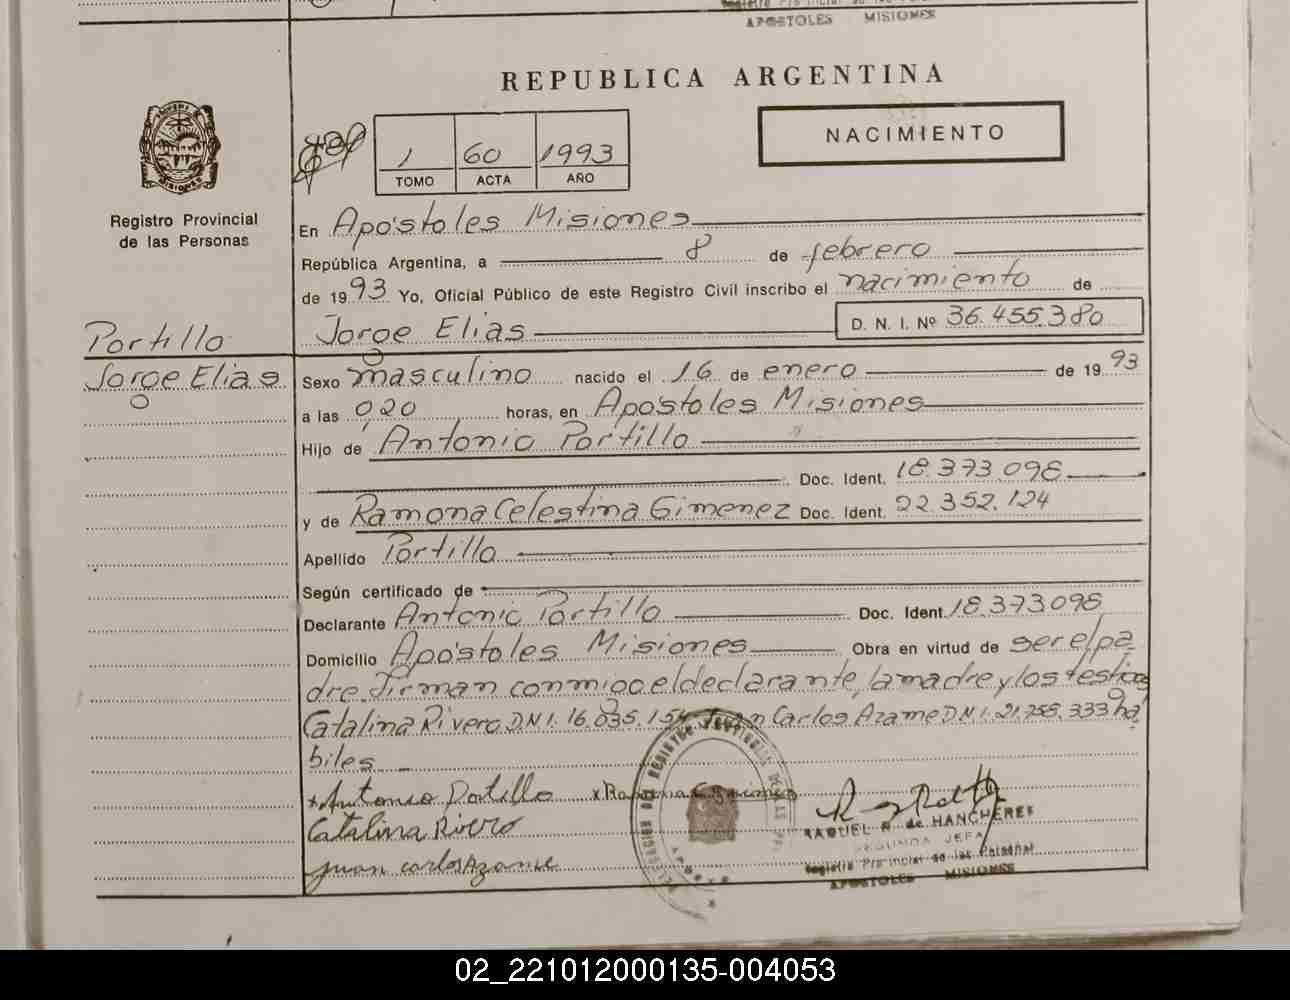 APOSTOLES MISIONES
REPUBLICA ARGENTINA
NACIMIENTO
1 60 1993
TOMO ACTA AÑO
Registro Provincial
de las Personas
En Apóstoles Misiones
República Argentina, a 8 de febrero
de 1993 Yo, Oficial Público de este Registro Civil inscribo el nacimiento de
Jorge Elias D. N. I. Nº 36.455.380
Portillo
Jorge Elias
Sexo masculino nacido el 16 de enero de 1993
a las 0,20 horas, en Apóstoles Misiones
Hijo de Antonio Portillo
Doc. Ident. 18.373.098
y de Ramona Celestina Gimenez Doc. Ident. 22.352.124
Apellido Portillo
Según certificado de
Declarante Antonio Portillo Doc. Ident. 18.373.098
Domicilio Apóstoles Misiones Obra en virtud de ser el pa
dre. Firman conmigo el declarante, la madre y los testigos
Catalina Rivero DNI. 16.035.154 Juan Carlos Azame DNI. 21.758.333 há
biles
x Antonio Portillo x Ramona Gimenez
Catalina Rivero
Juan carlos Azame
RAQUEL R. de HANCHERES
SEGUNDA JEFA
Registro Provincial de las Personas
APOSTOLES MISIONES
02_221012000135-004053